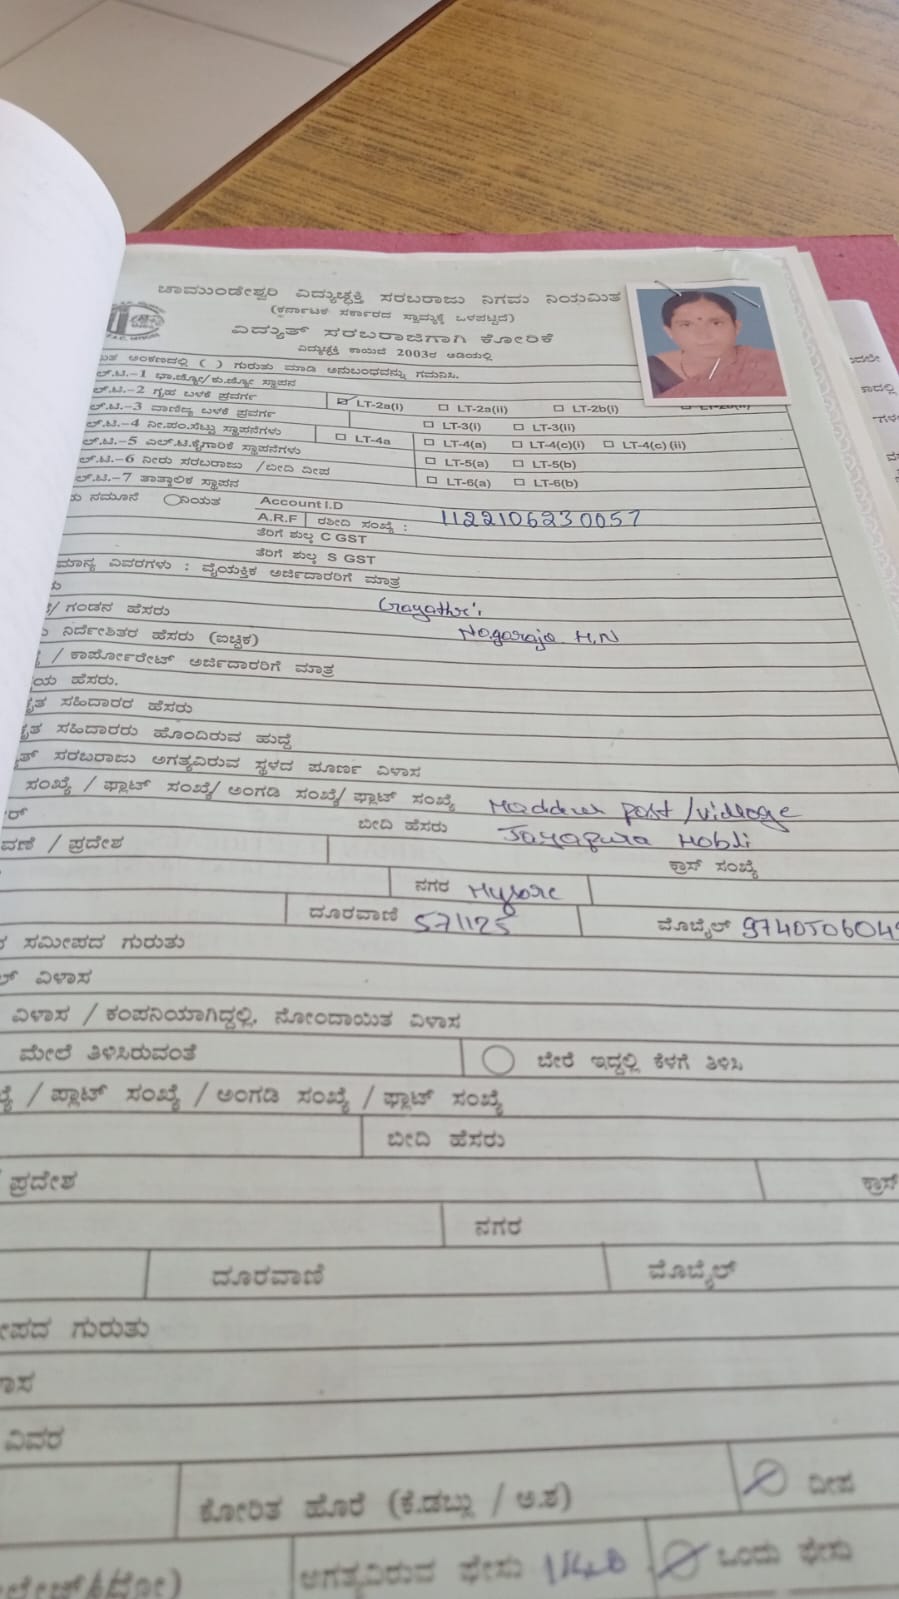 ಚಾಮುಂಡೇಶ್ವರಿ ವಿದ್ಯುಚ್ಛಕ್ತಿ ಸರಬರಾಜು ನಿಗಮ ನಿಯಮಿತ
(ಕರ್ನಾಟಕ ಸರ್ಕಾರದ ಸ್ವಾಮ್ಯಕ್ಕೆ ಒಳಪಟ್ಟಿದೆ)
ವಿದ್ಯುತ್ ಸರಬರಾಜಿಗಾಗಿ ಕೋರಿಕೆ
ವಿದ್ಯುಚ್ಛಕ್ತಿ ಕಾಯಿದೆ 2003ರ ಅಡಿಯಲ್ಲಿ
ಅಂಕಣದಲ್ಲಿ ( ) ಗುರುತು ಮಾಡಿ ಅನುಬಂಧವನ್ನು ಗಮನಿಸಿ.
ಲ್.ಟಿ.-1 ಭಾ.ಜ್ಯೋ/ಕು.ಜ್ಯೋ ಸ್ಥಾಪನ
ಲ್.ಟಿ.-2 ಗೃಹ ಬಳಕೆ ಪ್ರವರ್ಗ LT-2a(i) LT-2a(ii) LT-2b(i)
ಲ್.ಟಿ.-3 ವಾಣಿಜ್ಯ ಬಳಕೆ ಪ್ರವರ್ಗ LT-3(i) LT-3(ii)
ಲ್.ಟಿ.-4 ನೀ.ಪಂ.ಸೆಟ್ಟು ಸ್ಥಾಪನೆಗಳು LT-4a LT-4(a) LT-4(c)(i) LT-4(c) (ii)
ಲ್.ಟಿ.-5 ಎಲ್.ಟಿ.ಕೈಗಾರಿಕೆ ಸ್ಥಾಪನೆಗಳು LT-5(a) LT-5(b)
ಲ್.ಟಿ.-6 ನೀರು ಸರಬರಾಜು /ಬೀದಿ ದೀಪ LT-6(a) LT-6(b)
ಲ್.ಟಿ.-7 ತಾತ್ಕಾಲಿಕ ಸ್ಥಾಪನ
ನಮೂನೆ ನಿಯತ Account I.D
A.R.F ರಶೀದಿ ಸಂಖ್ಯೆ : 1122106230057
ತೆರಿಗೆ ಶುಲ್ಕ C GST
ತೆರಿಗೆ ಶುಲ್ಕ S GST
ಮಾನ್ಯ ವಿವರಗಳು : ವೈಯಕ್ತಿಕ ಅರ್ಜಿದಾರರಿಗೆ ಮಾತ್ರ
Gayathri
/ ಗಂಡನ ಹೆಸರು Nagaraja H.N
ನಿರ್ದೇಶಿತರ ಹೆಸರು (ಐಚ್ಛಿಕ)
/ ಕಾರ್ಪೋರೇಟ್ ಅರ್ಜಿದಾರರಿಗೆ ಮಾತ್ರ
ಯ ಹೆಸರು.
ಕೃತ ಸಹಿದಾರರ ಹೆಸರು
ಕೃತ ಸಹಿದಾರರು ಹೊಂದಿರುವ ಹುದ್ದೆ
ತ್ ಸರಬರಾಜು ಅಗತ್ಯವಿರುವ ಸ್ಥಳದ ಪೂರ್ಣ ವಿಳಾಸ
ಸಂಖ್ಯೆ / ಫ್ಲಾಟ್ ಸಂಖ್ಯೆ/ ಅಂಗಡಿ ಸಂಖ್ಯೆ/ ಫ್ಲಾಟ್ ಸಂಖ್ಯೆ post/village
ಬೀದಿ ಹೆಸರು Jayapura Hobli
ವಣೆ / ಪ್ರದೇಶ ಕ್ರಾಸ್ ಸಂಖ್ಯೆ
ನಗರ Mysore
ದೂರವಾಣಿ 571125 ಮೊಬೈಲ್
ಸಮೀಪದ ಗುರುತು
ವಿಳಾಸ
ವಿಳಾಸ / ಕಂಪನಿಯಾಗಿದ್ದಲ್ಲಿ, ನೋಂದಾಯಿತ ವಿಳಾಸ
ಮೇಲೆ ತಿಳಿಸಿರುವಂತೆ ಬೇರೆ ಇದ್ದಲ್ಲಿ ಕೆಳಗೆ ತಿಳಿಸಿ
/ ಪ್ಲಾಟ್ ಸಂಖ್ಯೆ / ಅಂಗಡಿ ಸಂಖ್ಯೆ / ಫ್ಲಾಟ್ ಸಂಖ್ಯೆ
ಬೀದಿ ಹೆಸರು
ಪ್ರದೇಶ ಕ್ರಾಸ್
ನಗರ
ದೂರವಾಣಿ ಮೊಬೈಲ್
ಪದ ಗುರುತು
ಾಸ
ವಿವರ
ಕೋರಿತ ಹೊರೆ (ಕೆ.ಡಬ್ಲು / ಅ.ಶ) ದೀಪ
ಅಗತ್ಯವಿರುವ ಫೇಸು ಒಂದು ಫೇಸು